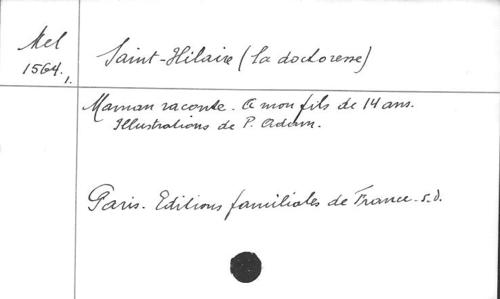 Mel
1564.1.
Saint-Hilaire (la doctoresse)
Maman raconte. A mon fils de 14 ans.
Illustrations de P. Adam.
Paris. Editions familiales de France. s.d.